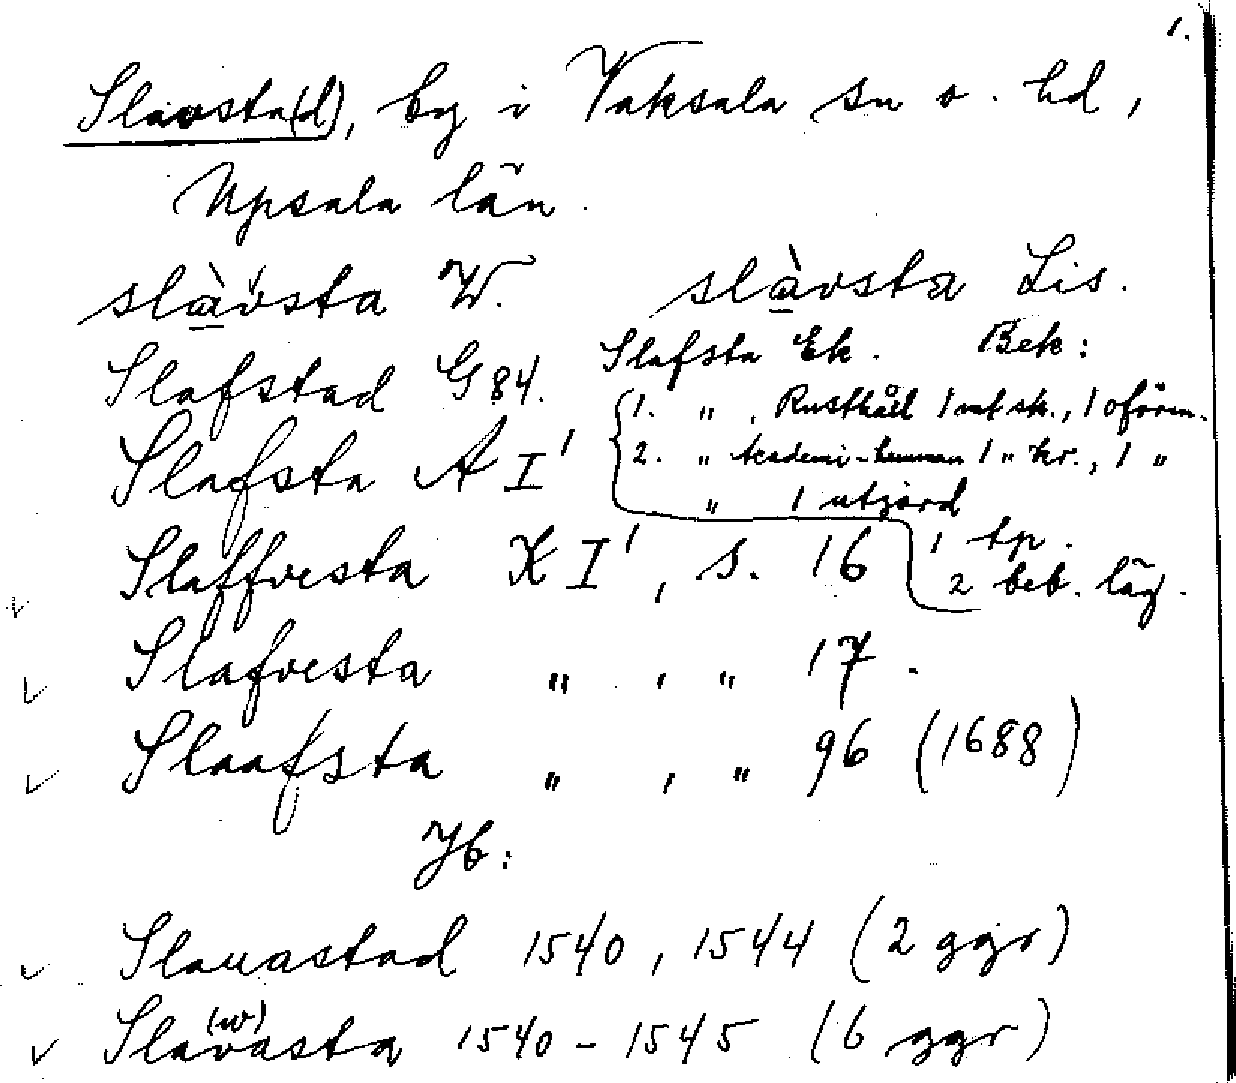 1.
Slavsta(d), by i Vaksala sn o. hd,
Upsala län.
slàvsta W. slàvsta Lis.
Slafstad G 84. Slafsta Ek. Bek:
1. " , Rusthåll 1 mt sk., 1 oförm.
Slafsta A I¹ 2. " Academi-hemman 1 " kr., 1 "
" 1 utjord
Slaffvesta K I¹, s. 16 1 tp.
2 beb. läg.
Slafvesta " , " 17.
Slaafsta " , " 96 (1688)
Jb:
Slauastad 1540, 1544 (2 ggr)
Slavasta (w) 1540-1545 (6 ggr)